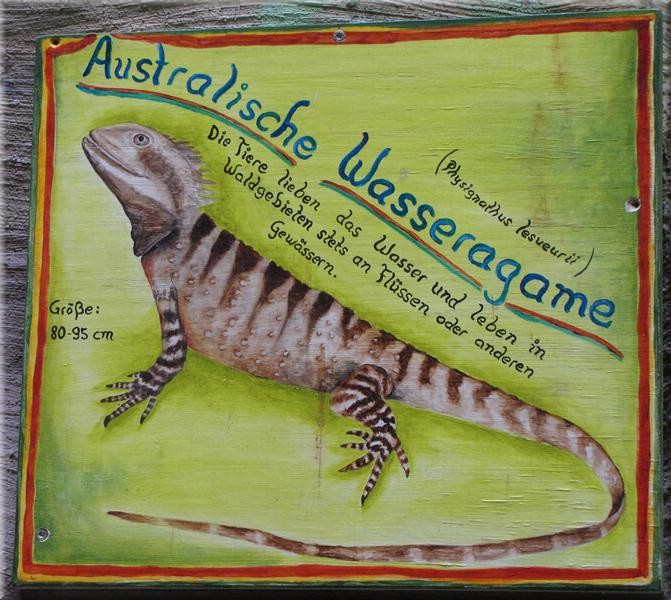 Australische Wasseragame
(Physignathus lesueurii)
Die Tiere lieben das Wasser und leben in
Waldgebieten stets an Flüssen oder anderen
Gewässern.
Größe:
80-95 cm